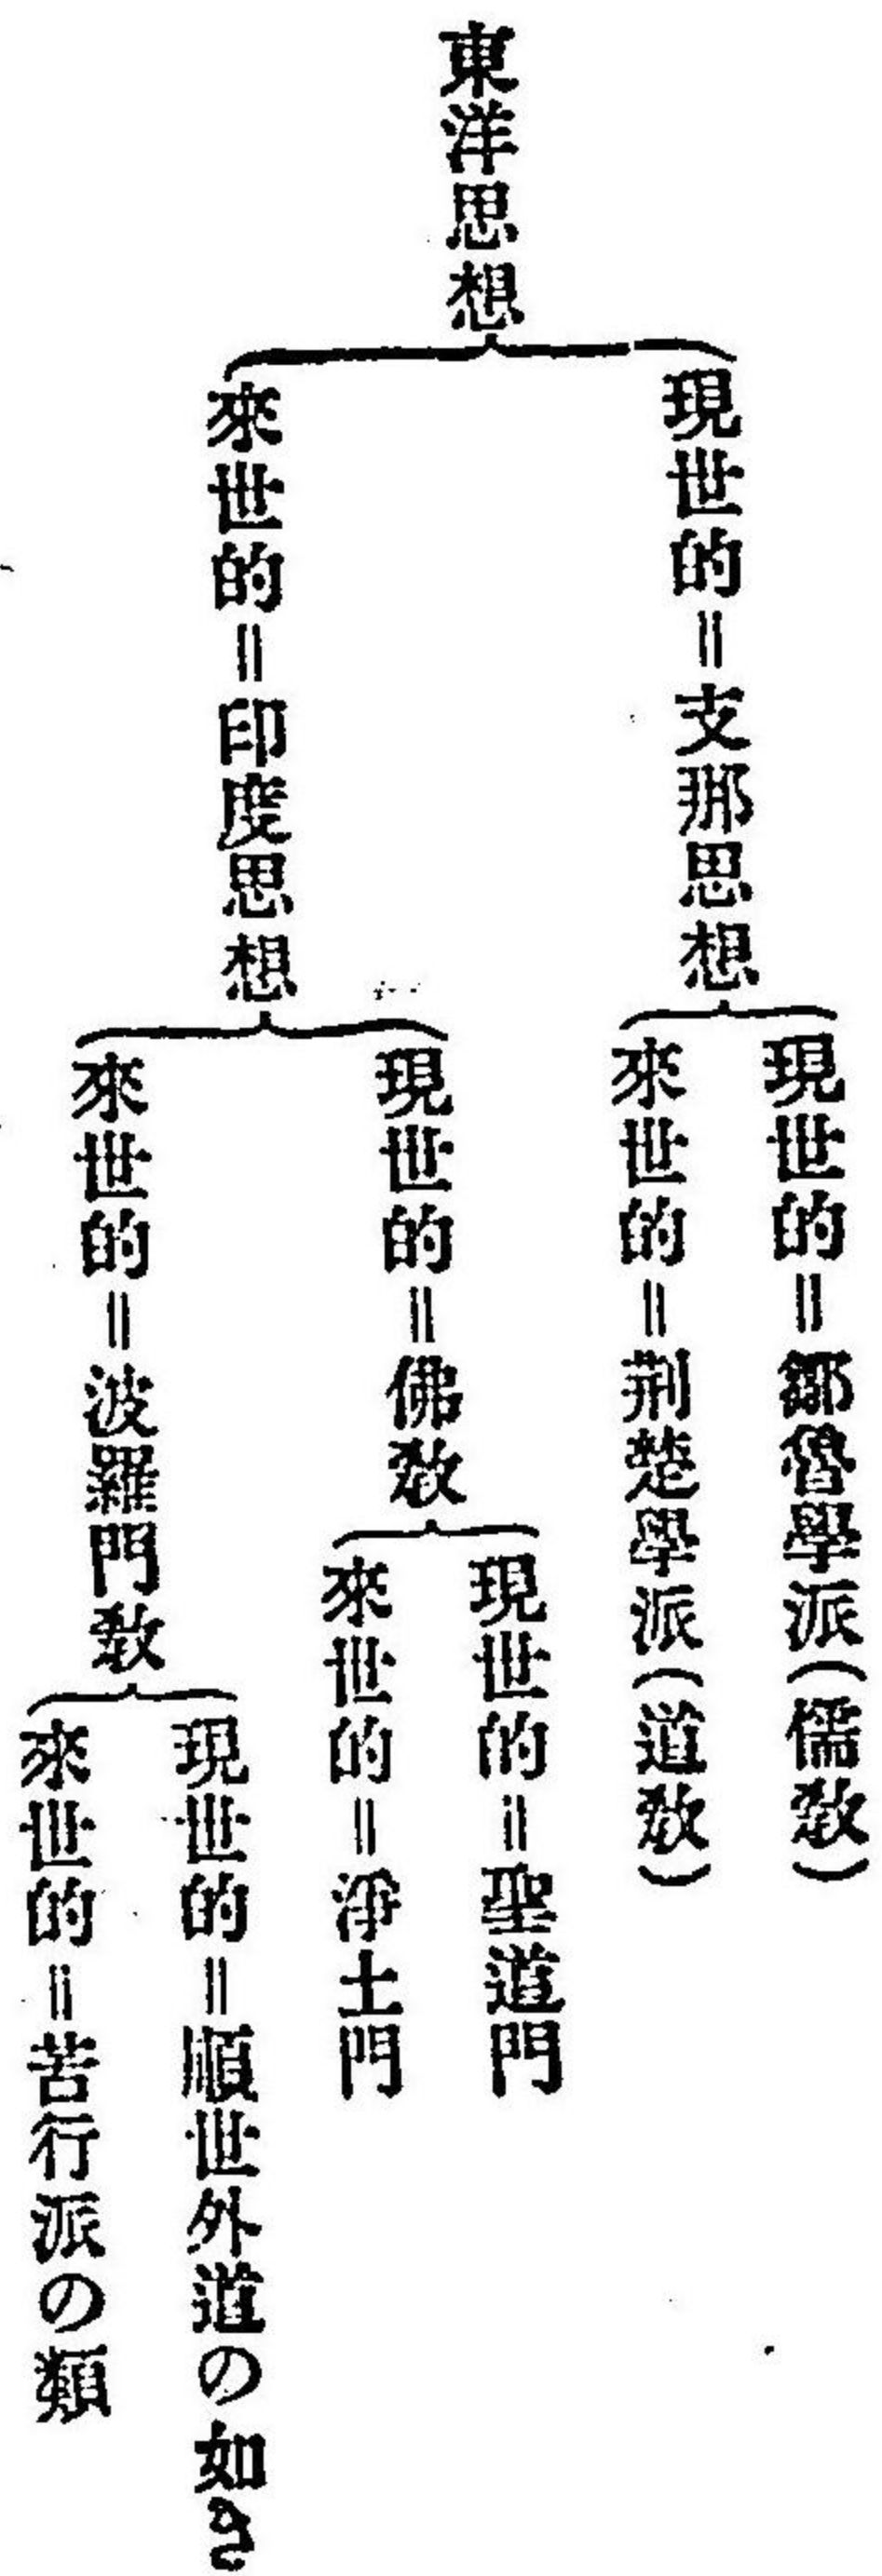 東洋思想
現世的＝支那思想
現世的＝鄒魯學派（儒敎）
來世的＝荆楚學派（道敎）
來世的＝印度思想
現世的＝佛敎
現世的＝聖道門
來世的＝淨土門
來世的＝波羅門敎
現世的＝順世外道の如き
來世的＝苦行派の類